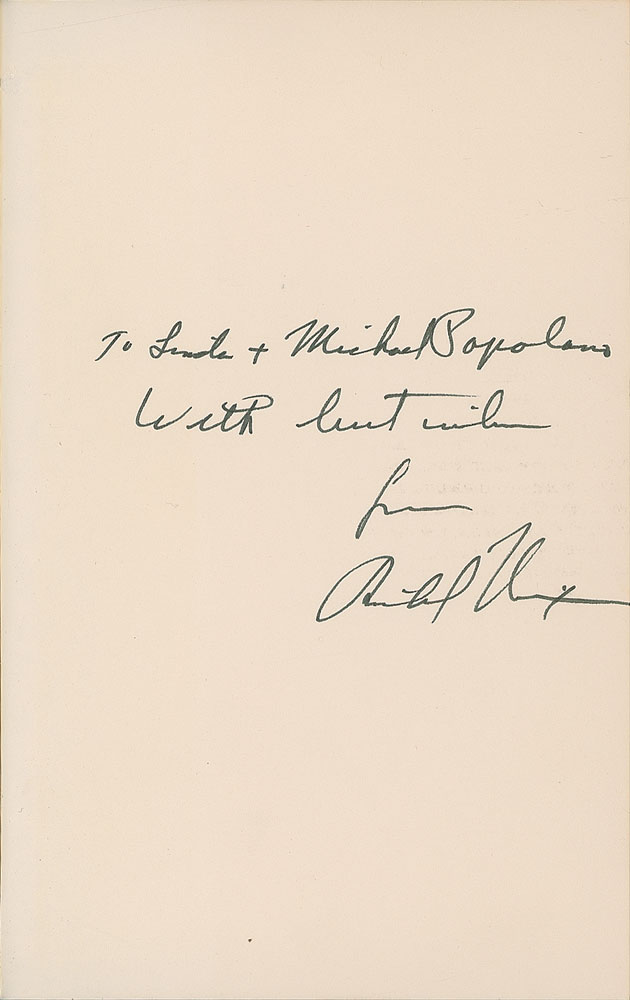 To Linda + Michael Popolano
With best wishes
from
Richard Nixon